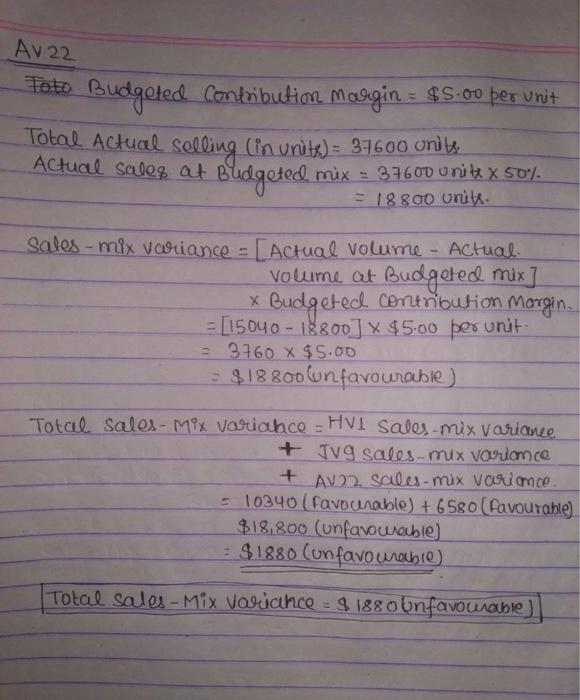 AV22
Toto Budgeted Contribution Margin = $5.00 per unit
Total Actual selling (in units) = 37600 units.
Actual sales at Budgeted mix = 37600 units x 50%.
= 18800 units.
Sales-mix variance = [Actual volume - Actual.
volume at Budgeted mix]
x Budgeted Contribution Margin.
= [15040 - 18800] x $5.00 per unit.
= 3760 x $5.00
= $18800 (unfavourable)
Total Sales-Mix variance = HV1 Sales-mix variance
+ JV9 sales-mix variance
+ AV22 sales-mix variance.
= 10340 (favourable) + 6580 (favourable)
$18,800 (unfavourable)
= $1880 (unfavourable)
Total Sales-Mix variance = $1880 (unfavourable)